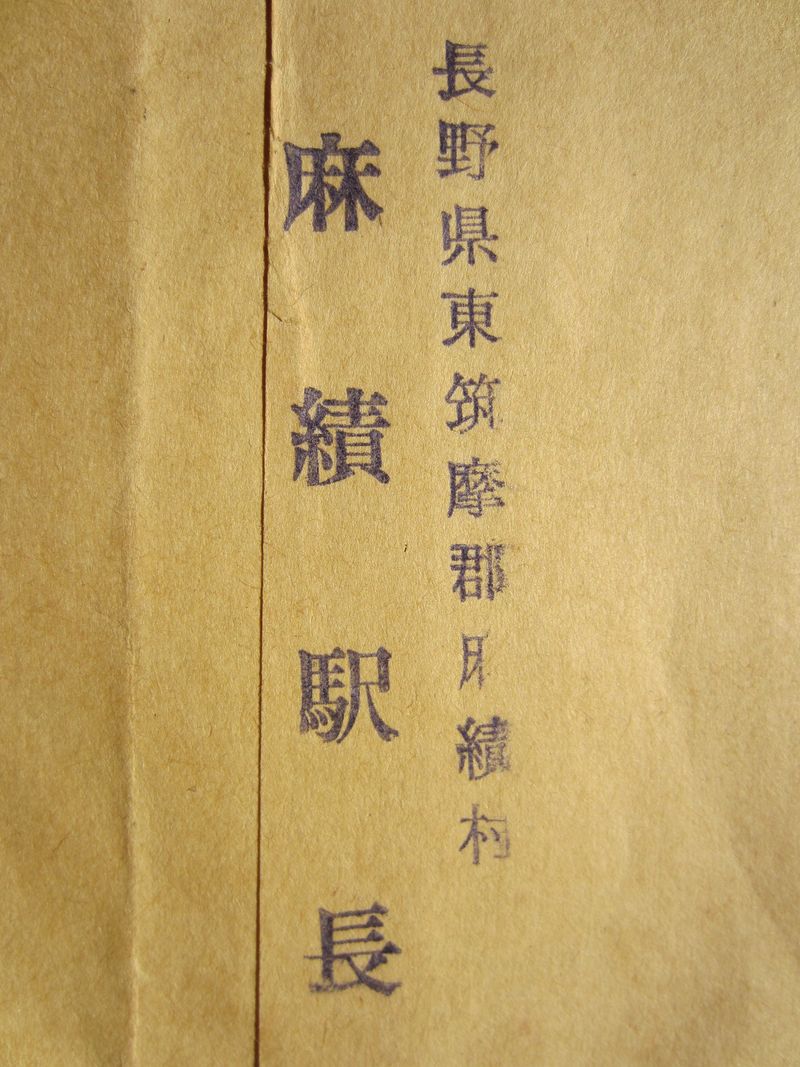 長野県東筑摩郡麻績村
麻績駅長